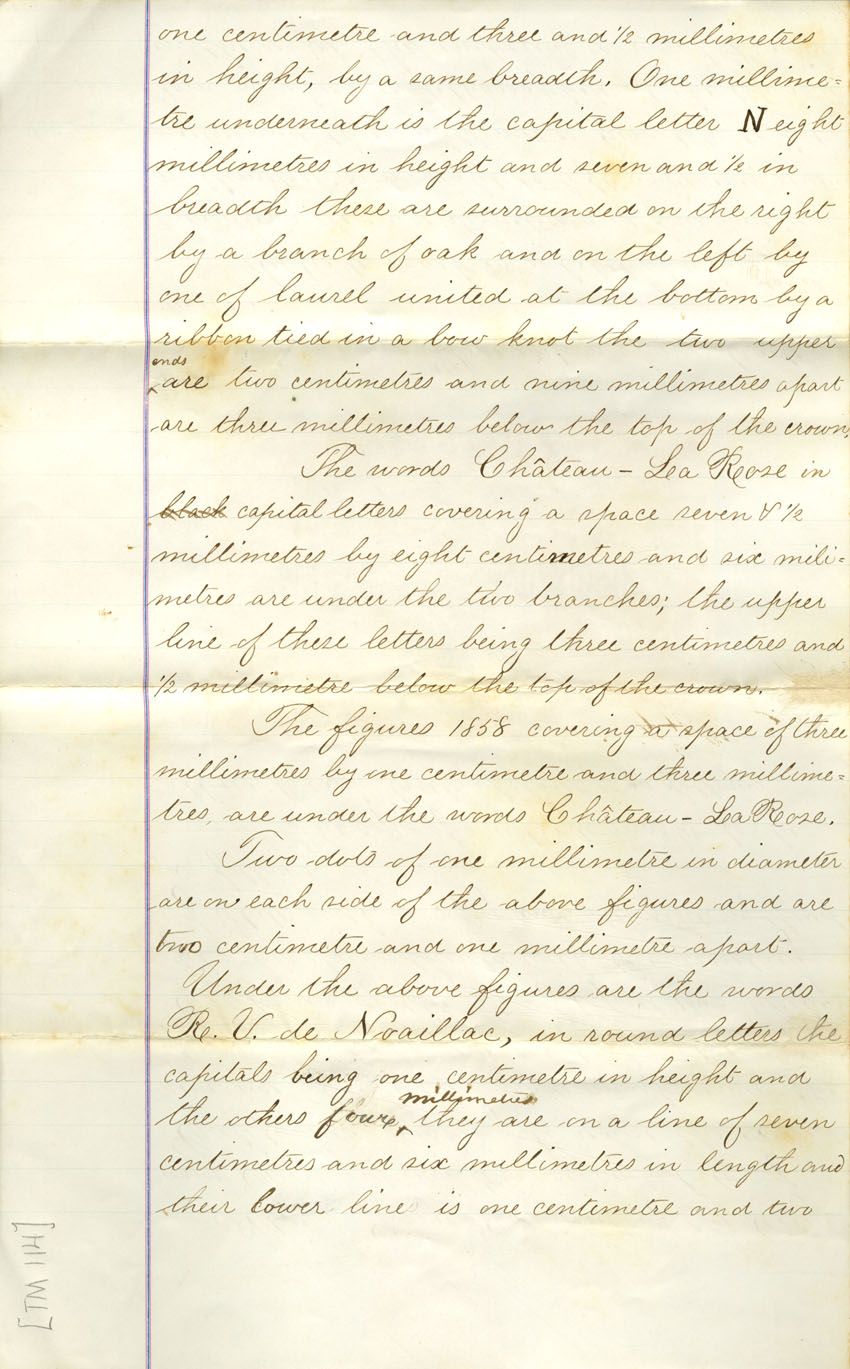 one centimetre and three and 1/2 millimetres
in height, by a same breadth. One millime=
tre underneath is the capital letter N eight
millimetres in height and seven and 1/2 in
breadth these are surrounded on the right
by a branch of oak and on the left by
one of laurel united at the bottom by a
ribbon tied in a bow knot the two upper
ends
are two centimetres and nine millimetres apart
are three millimetres below the top of the crown.
The words Château - La Rose in
black capital letters covering a space seven & 1/2
millimetres by eight centimetres and six mili=
metres are under the two branches; the upper
line of these letters being three centimetres and
1/2 millimetre below the top of the crown.
The figures 1858 covering a space of three
millimetres by one centimetre and three millime=
tres, are under the words Château - La Rose.
Two dots of one millimetre in diameter
are on each side of the above figures and are
two centimetre and one millimetre apart.
Under the above figures are the words
R. V. de Noaillac, in round letters the
capitals being one centimetre in height and
millimetres
the others four they are on a line of seven
centimetres and six millimetres in length and
their lower line is one centimetre and two
[TM 114]